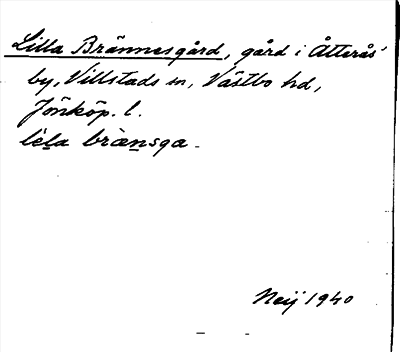 Lilla Brännesgård, gård i Åtterås
by, Villstads sn, Västbo hd,
Jönköp. l.
lèḷa bræ̀nsga.
Neij 1940